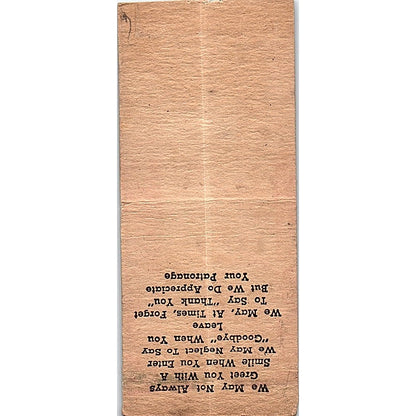 We May Not Always
Greet You With A
Smile When You Enter
We May Neglect To Say
"Goodbye" When You
Leave
We May, At Times, Forget
To Say "Thank You"
But We Do Appreciate
Your Patronage